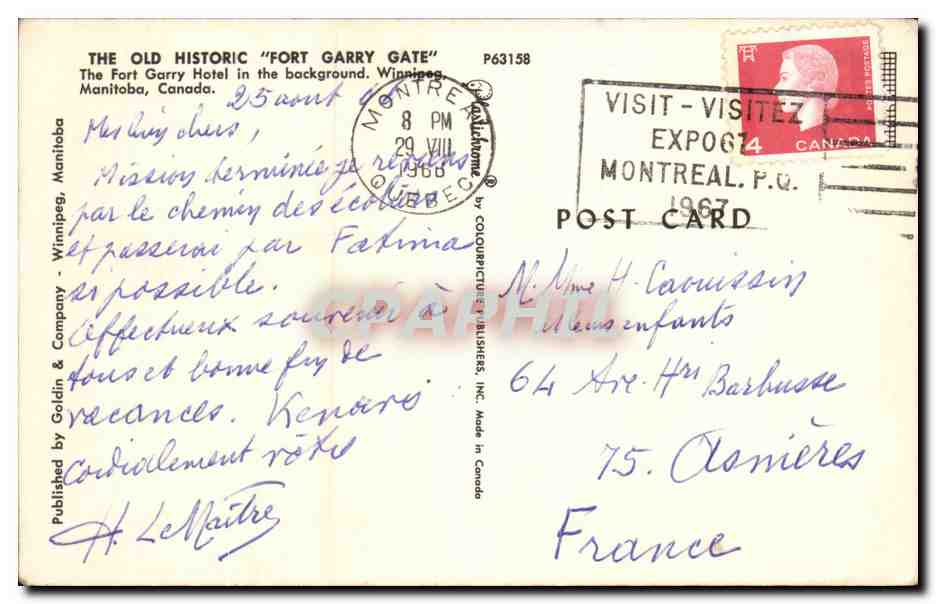 THE OLD HISTORIC "FORT GARRY GATE"
The Fort Garry Hotel in the background. Winnipeg,
Manitoba, Canada.
P63158
25 août
chers,
Mission terminée je reviens
par le chemin des écoliers
et passerai par Fatima
si possible.
Affectueux souvenir à
tous et bonne fin de
vacances. Kenavo
Cordialement vôtre
H. LeMaître
Published by Goldin & Company - Winnipeg, Manitoba
Plastichrome ® by COLOURPICTURE PUBLISHERS, INC. Made in Canada
MONTREAL
8 PM
29 VIII
1966
QUEBEC
VISIT - VISITEZ
EXPO67
MONTREAL. P.Q.
1967
POSTES POSTAGE
4 CANADA
POST CARD
M. Mme H. Caouissin
et leurs enfants
64 Ave Hri Barbusse
75. Asnières
France
CPAPHIL